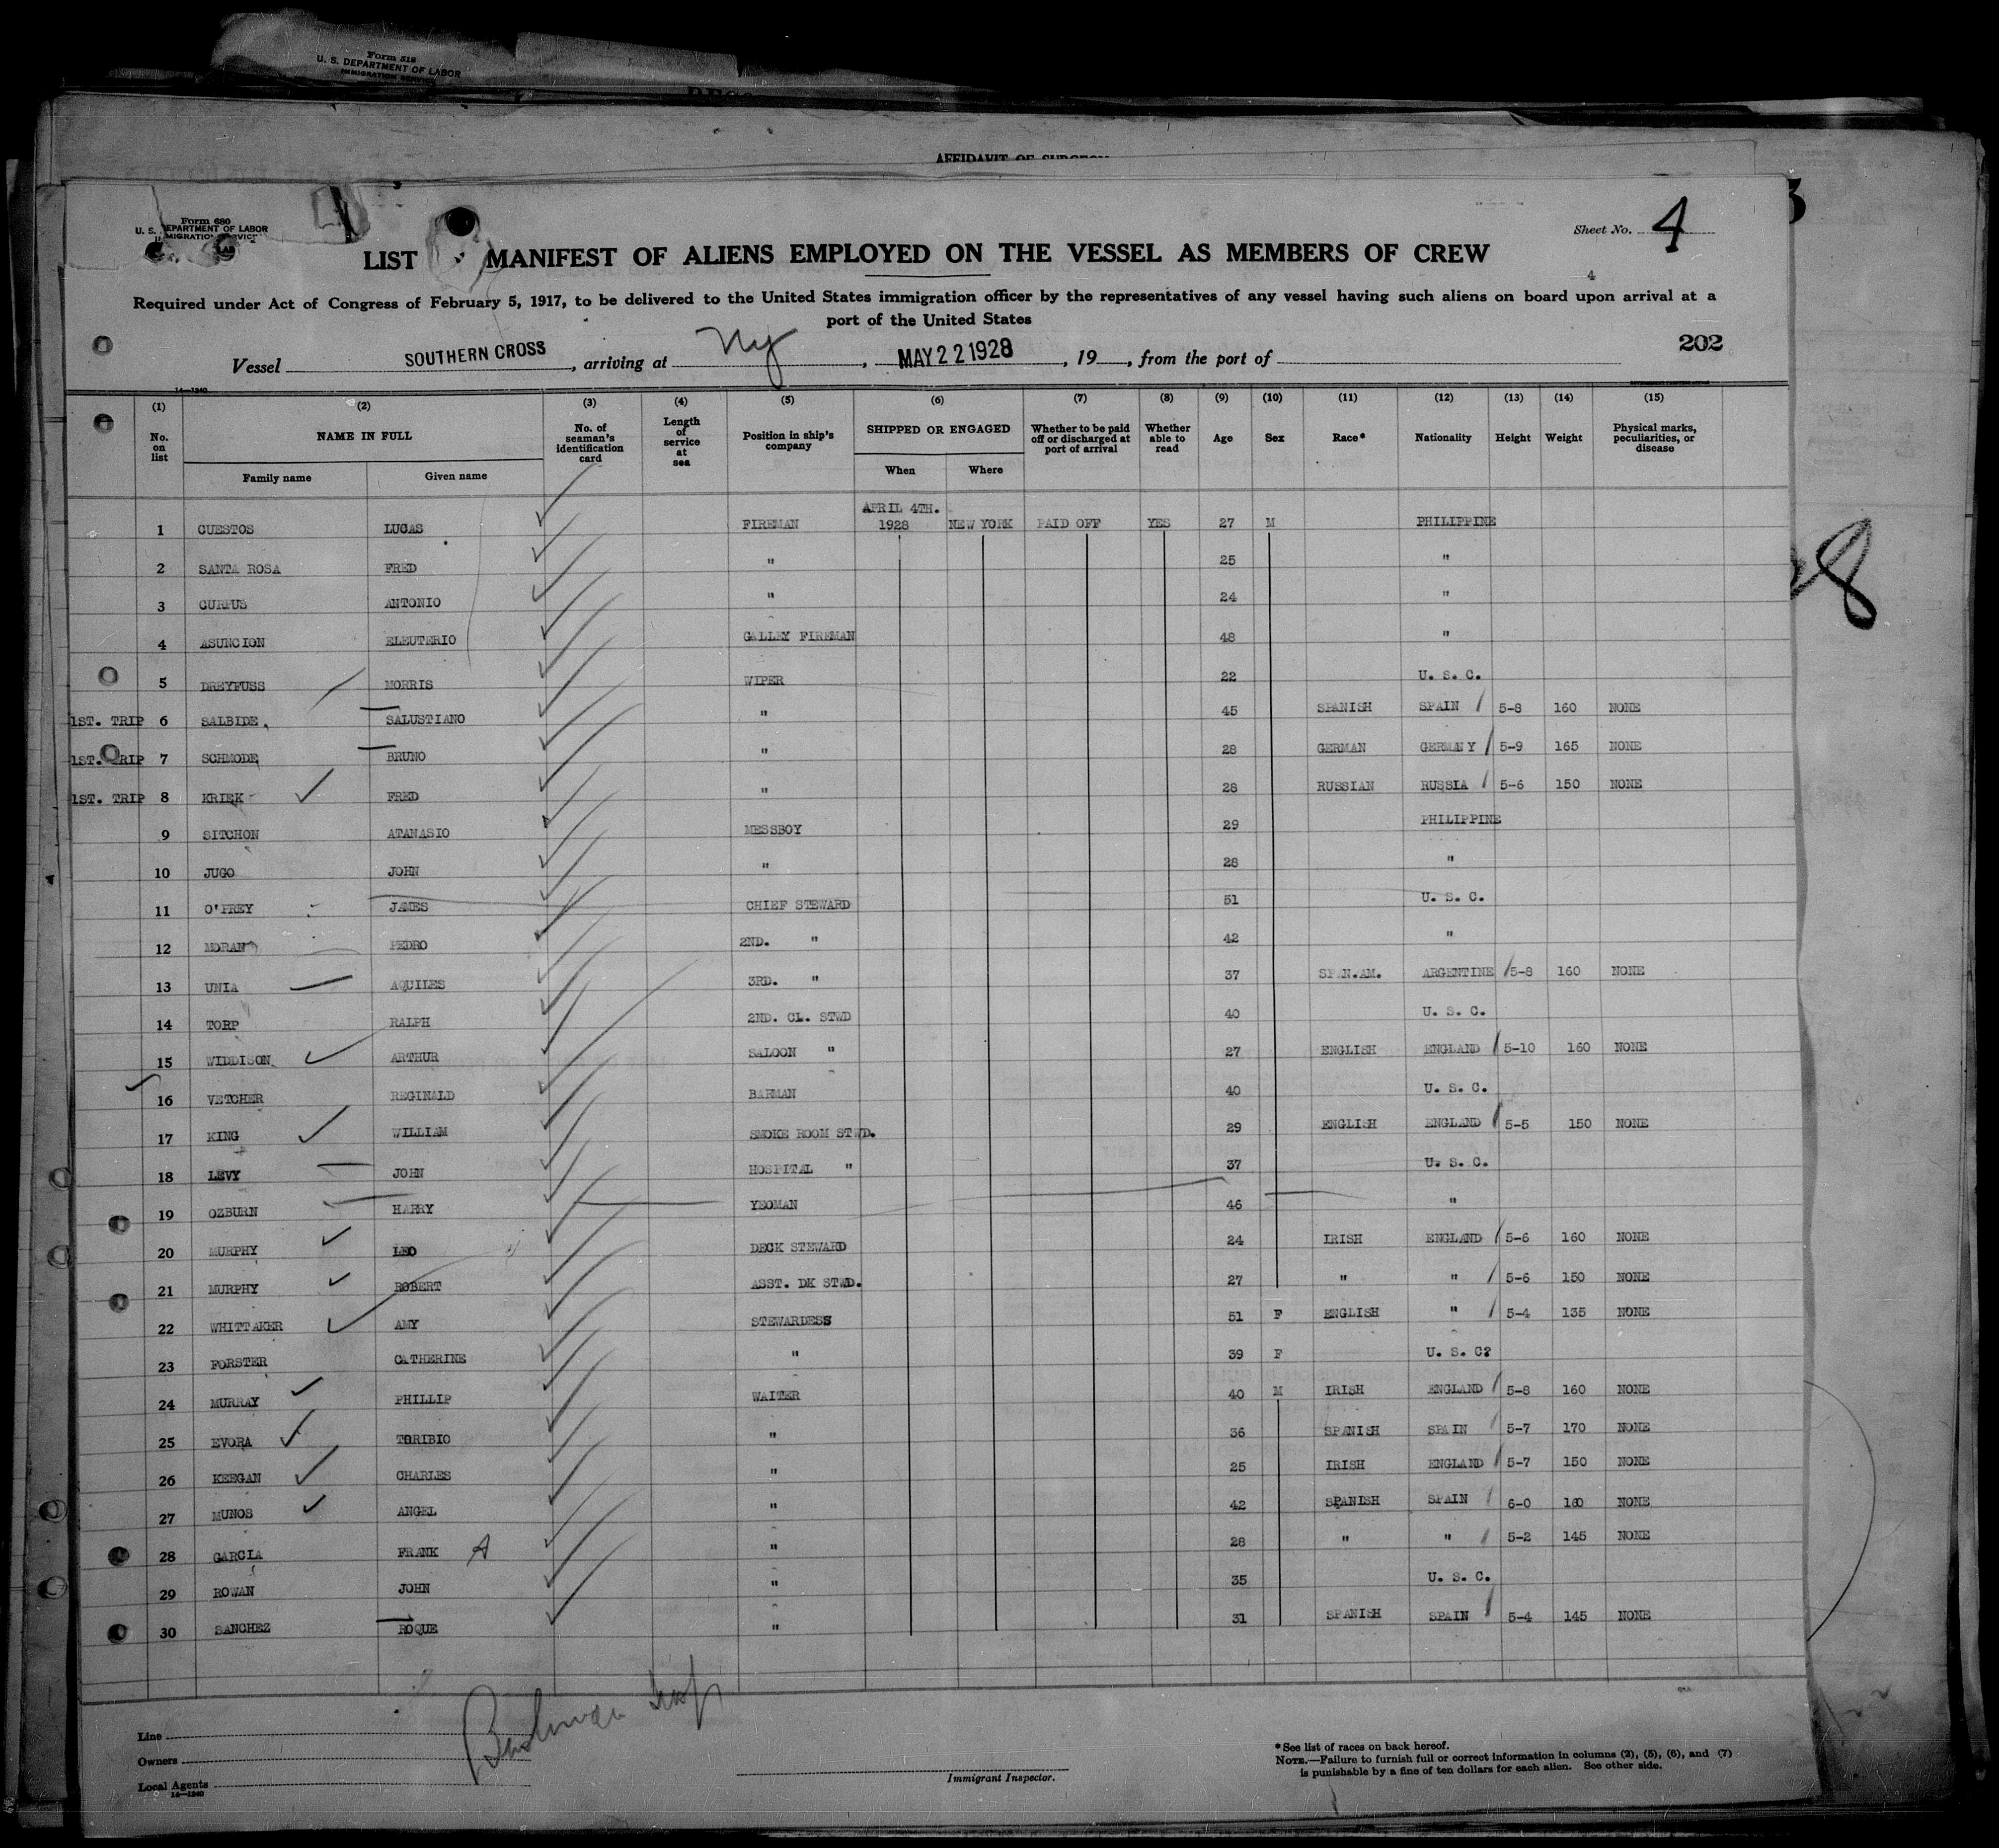 Form 518
U. S. DEPARTMENT OF LABOR
IMMIGRATION SERVICE
AFFIDAVIT OF SURGEON
Form 680
U. S. DEPARTMENT OF LABOR
Sheet No. 4
LIST MANIFEST OF ALIENS EMPLOYED ON THE VESSEL AS MEMBERS OF CREW
4
Required under Act of Congress of February 5, 1917, to be delivered to the United States immigration officer by the representatives of any vessel having such aliens on board upon arrival at a
port of the United States
202
Vessel SOUTHERN CROSS, arriving at Ny, MAY 22 1928, 19, from the port of
14—1240
(1) (2) (3) (4) (5) (6) (7) (8) (9) (10) (11) (12) (13) (14) (15)
No. on list NAME IN FULL No. of seaman's identification card Length of service at sea Position in ship's company SHIPPED OR ENGAGED Whether to be paid off or discharged at port of arrival Whether able to read Age Sex Race* Nationality Height Weight Physical marks, peculiarities, or disease
Family name Given name When Where
1 CUESTOS LUCAS FIREMAN APRIL 4TH. 1928 NEW YORK PAID OFF YES 27 M PHILIPPINE
2 SANTA ROSA FRED " 25 "
3 CURFUS ANTONIO " 24 "
4 ASUNCION ELEUTERIO GALLEY FIREMAN 48 "
5 DREYFUSS MORRIS WIPER 22 U. S. C.
1ST. TRIP 6 SALBIDE SALUSTIANO " 45 SPANISH SPAIN 5-8 160 NONE
1ST. TRIP 7 SCHMODE BRUNO " 28 GERMAN GERMANY 5-9 165 NONE
1ST. TRIP 8 KRIEK FRED " 28 RUSSIAN RUSSIA 5-6 150 NONE
9 SITCHON ATANASIO MESSBOY 29 PHILIPPINE
10 JUGO JOHN " 28 "
11 O'PREY JAMES CHIEF STEWARD 51 U. S. C.
12 MORAN PEDRO 2ND. " 42 "
13 UNIA AQUILES 3RD. " 37 SPAN.AM. ARGENTINE 5-8 160 NONE
14 TORP RALPH 2ND. CL. STWD 40 U. S. C.
15 WIDDISON ARTHUR SALOON " 27 ENGLISH ENGLAND 5-10 160 NONE
16 VETCHER REGINALD BARMAN 40 U. S. C.
17 KING WILLIAM SMOKE ROOM STWD. 29 ENGLISH ENGLAND 5-5 150 NONE
18 LEVY JOHN HOSPITAL " 37 U. S. C.
19 OZBURN HARRY YEOMAN 46 "
20 MURPHY LEO DECK STEWARD 24 IRISH ENGLAND 5-6 160 NONE
21 MURPHY ROBERT ASST. DK STWD. 27 " " 5-6 150 NONE
22 WHITTAKER AMY STEWARDESS 51 F ENGLISH " 5-4 135 NONE
23 FORSTER CATHERINE " 39 F U. S. C?
24 MURRAY PHILLIP WAITER 40 M IRISH ENGLAND 5-8 160 NONE
25 EVORA TORIBIO " 36 SPANISH SPAIN 5-7 170 NONE
26 KEEGAN CHARLES " 25 IRISH ENGLAND 5-7 150 NONE
27 MUNOS ANGEL " 42 SPANISH SPAIN 6-0 160 NONE
28 GARCIA FRANK A " 28 " " 5-2 145 NONE
29 ROWAN JOHN " 35 U. S. C.
30 SANCHEZ ROQUE " 31 SPANISH SPAIN 5-4 145 NONE
Line
Owners
Local Agents
14—1240
Immigrant Inspector.
*See list of races on back hereof.
NOTE.—Failure to furnish full or correct information in columns (2), (5), (6), and (7)
is punishable by a fine of ten dollars for each alien. See other side.